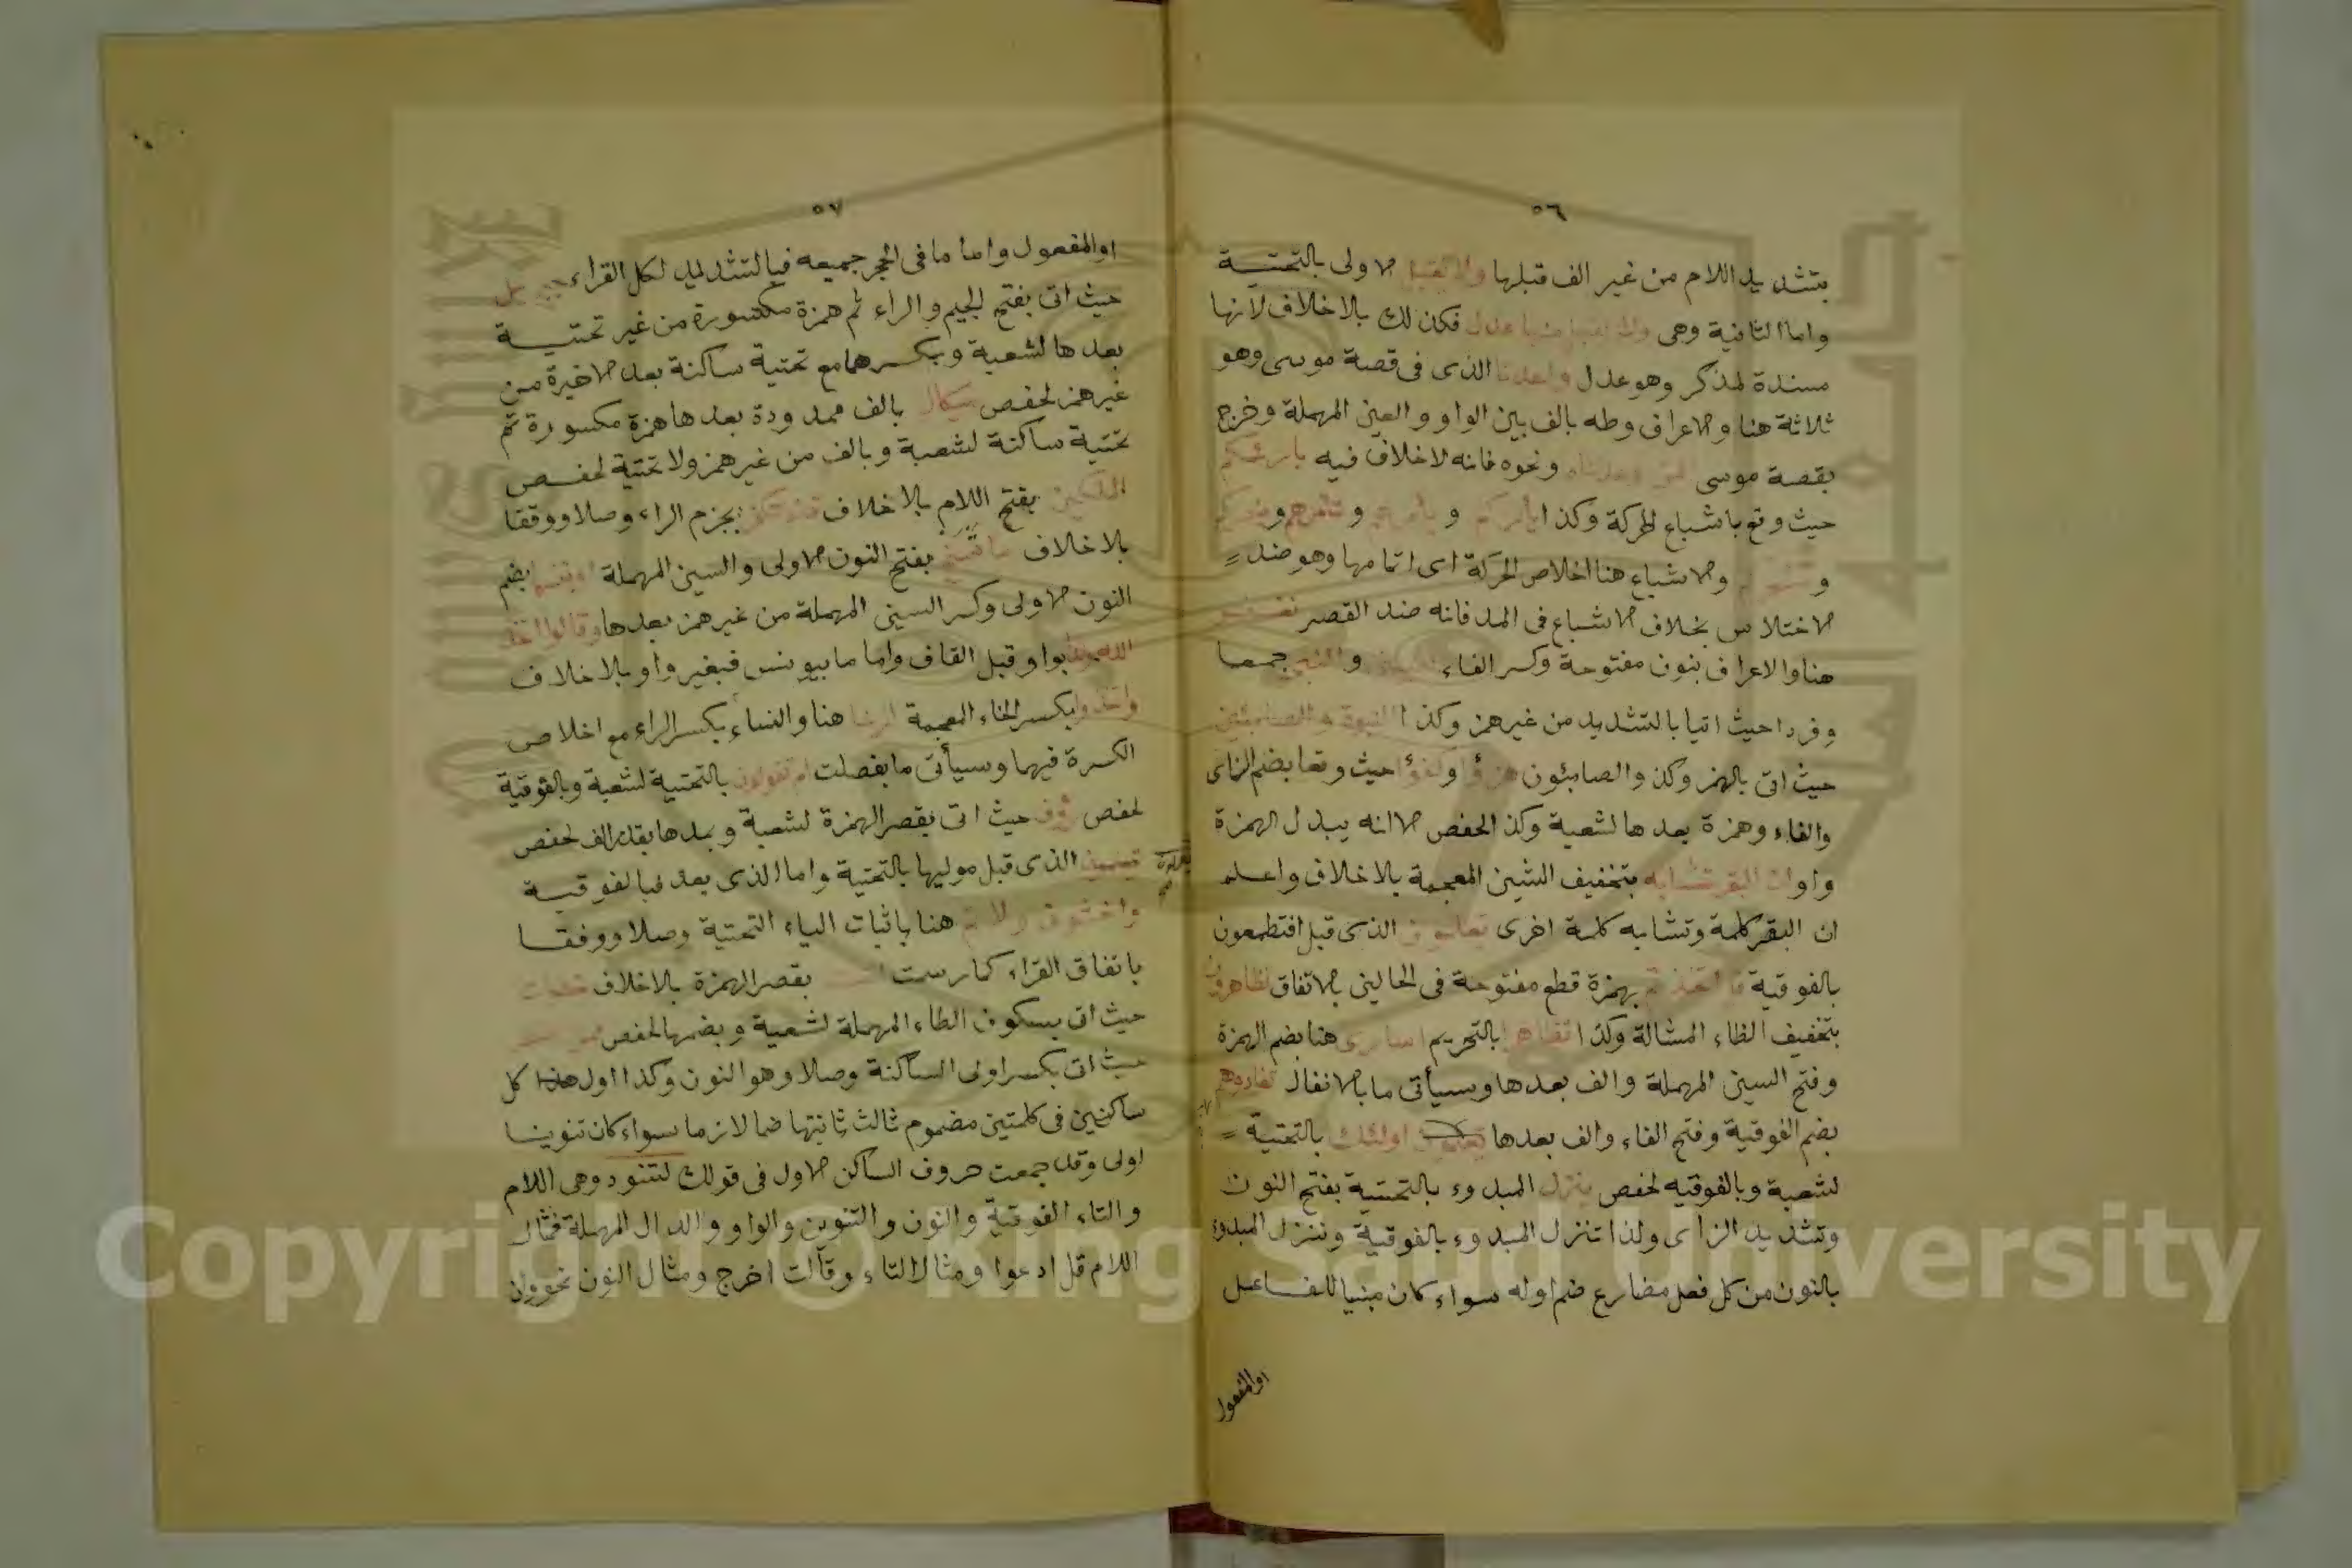 ٥٦
بتشديد اللام من غير الف قبلها ولا يقبل الاولى بالتحتية
واما الثانية وهى ولا يقبل منها عدل فكذلك بلا خلاف لانها
مسندة لمذكر وهو عدل واعدنا الذى فى قصة موسى وهو
ثلاثة هنا والاعراف وطه بالف بين الواو والعين المهملة وخرج
بقصة موسى ونحوه فانه لا خلاف فيه بارئكم
حيث وقع باشباع الحركة وكذا يأمركم و وتأمرهم
و والاشباع هنا اخلاص الحركة اى اتمامها وهو ضد
الاختلاس بخلاف الاشباع فى المد فانه ضد القصر نغفر
هنا والاعراف بنون مفتوحة وكسر الفاء والنبى جمعا
وفردا حيث اتيا بالتشديد من غير همز وكذا النبوة والصابئين
حيث اتى بالهمز وكذ والصابئون هزؤا وكفؤا حيث وقعا بضم الزاى
والفاء وهمزة بعدها لشعبة وكذا لحفص الا انه يبدل الهمزة
واوا ان البقر تشابه بتخفيف الشين المعجمة بلا خلاف واعلم
ان البقر كلمة وتشابه كلمة اخرى تعملون الذى قبل افتطمعون
بالفوقية قل اتخذتم بهمزة قطع مفتوحة فى الحالين بالاتفاق تظاهرون
بتخفيف الظاء المشالة وكذا تظاهرا بالتحريم اسارى هنا بضم الهمزة
وفتح السين المهملة والف بعدها وسيأتى ما بالانفال تفادوهم
بضم الفوقية وفتح الفاء والف بعدها اولئك بالتحتية
لشعبة وبالفوقيه لحفص ينزل المبدوء بالتحتية بفتح النون
وتشديد الزاى ولذا تنزل المبدوء بالفوقية وننزل المبدوء
بالنون من كل فعل مضارع ضم اوله سواء كان مبنيا للفاعل
او المفعول
٥٧
او المفعول واما ما فى الحجر جميعه فبالتشديد لكل القراء جبريل
حيث اتى بفتح الجيم والراء ثم همزة مكسورة من غير تحتية
بعدها لشعبة وبكسرهما مع تحتية ساكنة بعد الاخيرة من
غير همز لحفص ميكال بالف ممدودة بعدها همزة مكسورة ثم
تحتية ساكنة لشعبة وبالف من غير همز ولا تحتية لحفص
الملكين بفتح اللام بلا خلاف بجزم الراء وصلا ووقفا
بلا خلاف ما ننسخ بفتح النون الاولى والسين المهملة او ننسها بضم
النون الاولى وكسر السين المهملة من غير همز بعدها وقالوا اتخذ
الله ولدا بواو قبل القاف واما ما بيونس فبغير واو بلا خلاف
واتخذوا بكسر الخاء المعجمة ارنا هنا والنساء بكسر الراء مع اخلاص
الكسرة فيهما وسيأتى ما بفصلت ام تقولون بالتحتية لشعبة وبالفوقية
لحفص رؤف حيث اتى بقصر الهمزة لشعبة وبمدها بقدر الف لحفص
الذى قبل موليها بالتحتية واما الذى بعد فبالفوقية
واخشونى ولاتم هنا باثبات الياء التحتية وصلا ووقفا
باتفاق القراء كما رسمت بقصر الهمزة بلا خلاف خطوات
حيث اتى بسكون الطاء المهملة لشعبة وبضمها لحفص
حيث اتى بكسر اولى الساكنة وصلا وهو النون وكذا اول كل
ساكنين فى كلمتين مضموم ثالث ثانيتها ضما لازما سواء كان تنوينا
اولى وقد جمعت حروف الساكن الاول فى قولك لتنود وهى اللام
والتاء الفوقية والنون والتنوين والواو والدال المهملة فمثال
اللام قل ادعوا ومثال التاء وقالت اخرج ومثال النون نحو وان
Copyright © King Saud University